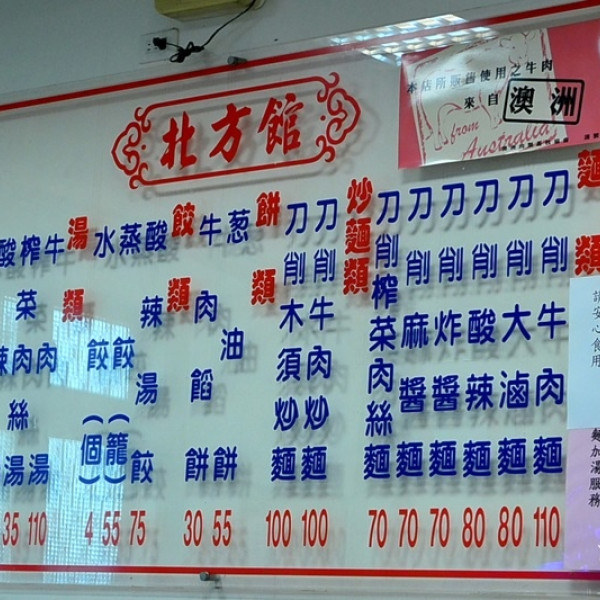 北方館
本店所販售使用之牛肉
來自 澳洲
from
Australia
麵類
刀削牛肉麵 110
刀削大滷麵 80
刀削酸辣麵 80
刀削炸醬麵 70
刀削麻醬麵 70
刀削榨菜肉絲麵 70
炒麵類
刀削牛肉炒麵 100
刀削木須炒麵 100
餅類
葱油餅 55
牛肉餡餅 30
餃類
酸辣湯餃 75
蒸餃(籠) 55
水餃(個) 4
湯類
牛肉湯 110
榨菜肉絲湯 35
酸辣
請安心食用
麵加湯服務